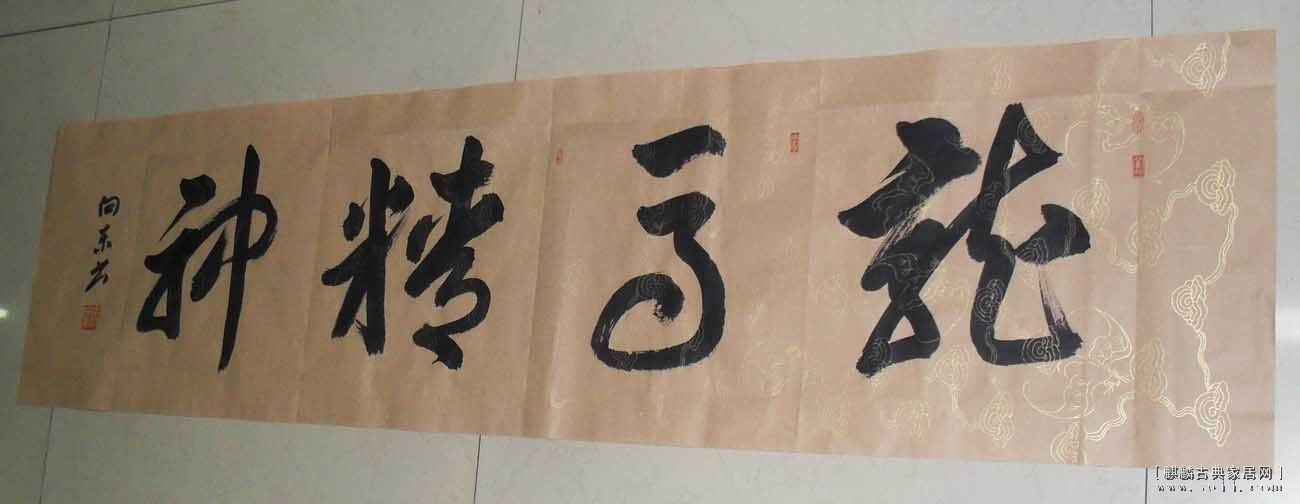 龍馬精神
向东书
[麒麟古典家居网]